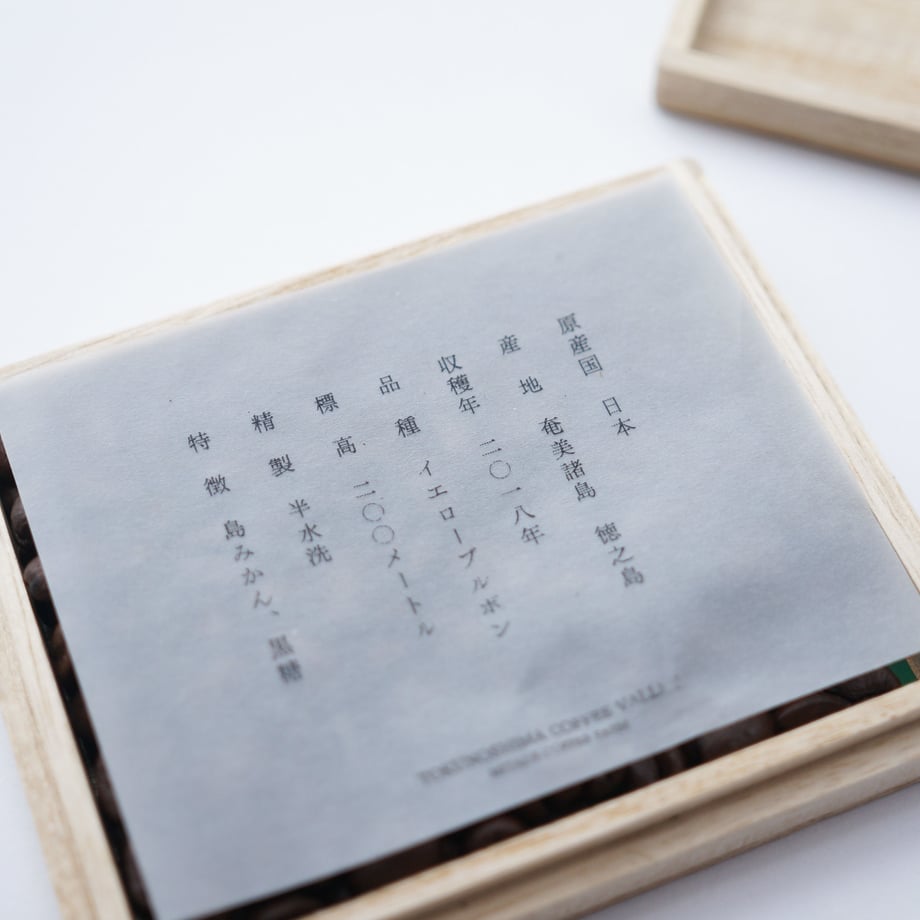 原産国 日本
産地 奄美諸島 徳之島
収穫年 二〇一八年
品種 イエローブルボン
標高 二〇〇メートル
精製 半水洗
特徴 島みかん、黒糖
TOKUNOSHIMA COFFEE VALLEY